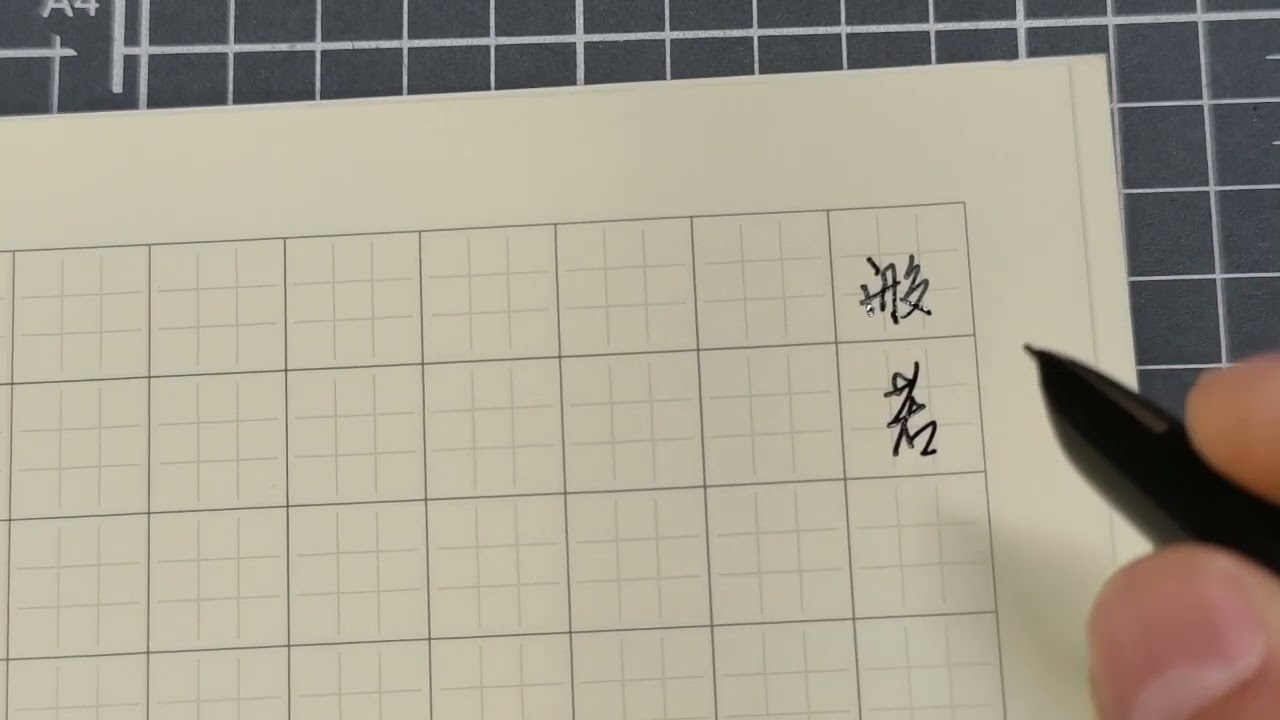 A4
般若